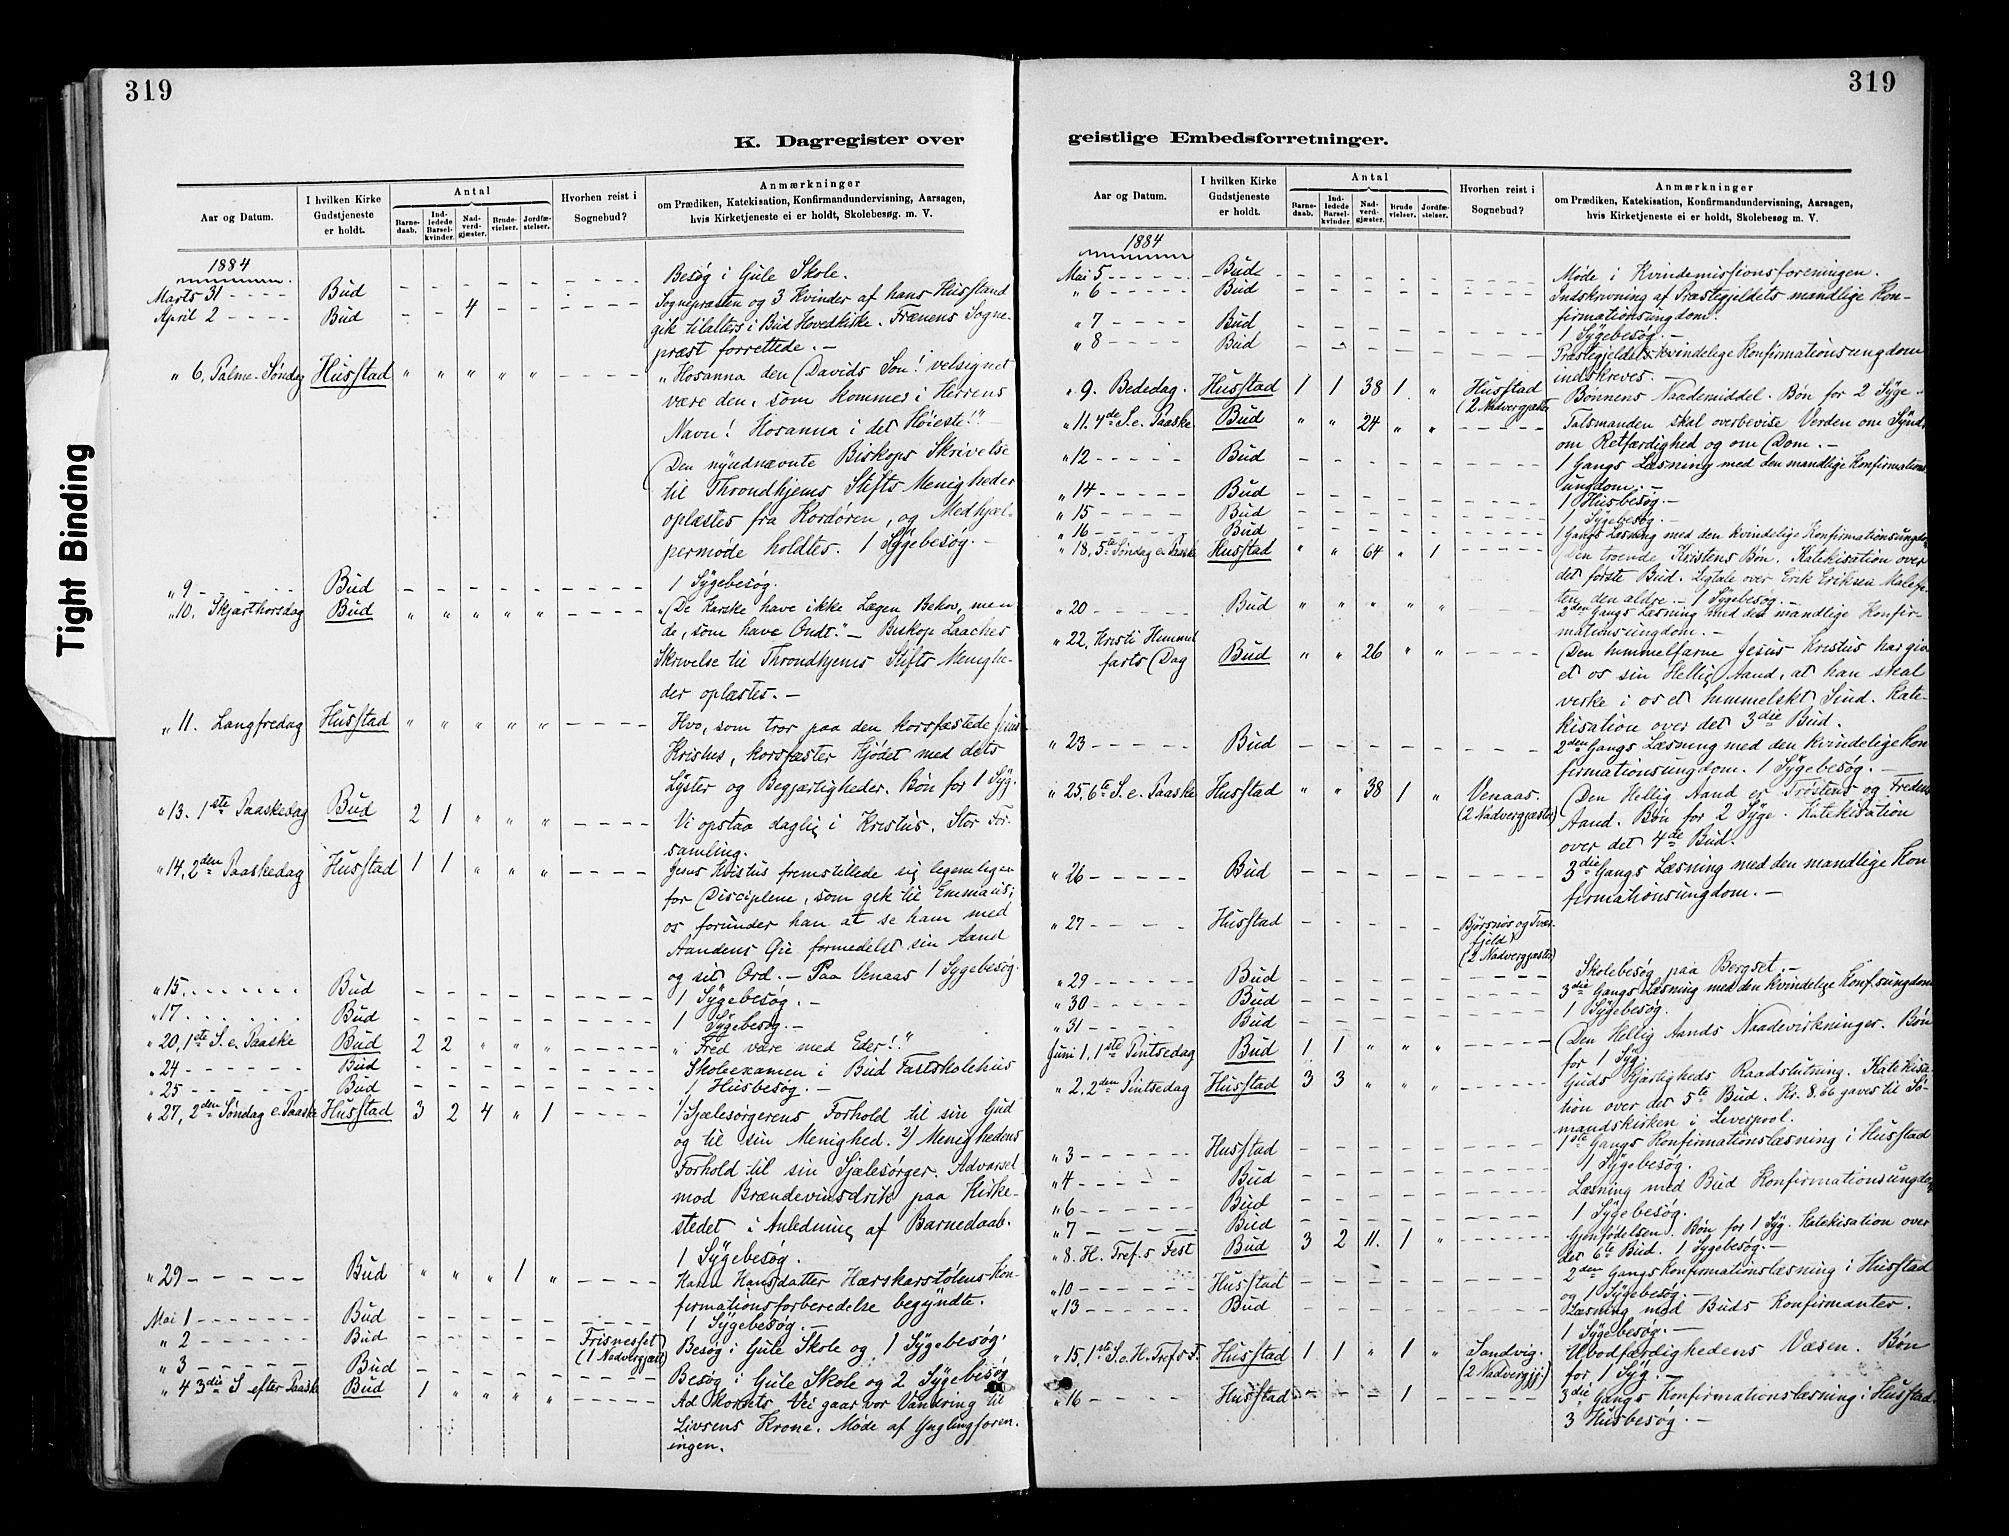 319
K. Dagregister over
Aar og Datum.
I hvilken Kirke Gudstjeneste er holdt.
Antal
Barne-daab.
Ind-ledede Barsel-kvinder.
Nad-verd-gjæster.
Brude-vielser.
Jordfæ-stelser.
Hvorhen reist i Sognebud?
Anmærkninger
om Prædiken, Katekisation, Konfirmandundervisning, Aarsagen,
hvis Kirketjeneste ei er holdt, Skolebesøg m. V.
1884
Marts 31 - - - - Bud - - - - - - - - - Besøg i Gule Skole.
April 2 - - - - Bud - - 4 - - - - - - Sognepræsten og 3 Kvinder af hans Husstand
gik tilalters i Bud Hovedkirke. Frænens Sogne-
præst forrettede. -
" 6, Palme-Søndag Husstad " " " " " - - - - "Hosanna den Davids Søn! velsignet
være den, som kommer i Herrens
Navn! Hosanna i det Høieste!" -
Den nyudnævnte Biskops Skrivelse
til Throndhjems Stifts Menigheder
oplæstes fra Kordøren, og Medhjæl-
permøde holdtes. 1 Sygebesøg. -
" 9 - - - - - Bud - - - - - - - - - 1 Sygebesøg.
" 10. Skjærthorsdag Bud " " " " " - - - - "De Karske have ikke Lægen Behov, men
de, som have Ondt." - Biskop Laaches
Skrivelse til Throndhjems Stifts Menighe-
der oplæstes. -
" 11. Langfredag Husstad " " " " " - - - - Hvo, som tror paa den korsfæstede Jesus
Kristus, korsfæster Kjødet med dets
Lyster og Begjærligheder. Bøn for 1 Syg.
" 13. 1ste Paaskedag Bud 2 1 " " " - - - - Vi opstaa daglig i Kristus. Stor For-
samling.
" 14, 2den Paaskedag Husstad 1 1 " " " - - - - Jesus Kristus fremstillede sig legemligen
for Disciplene, som gik til Emmaus;
os forunder han at se ham med
Aandens Øie formedelst sin Aand
og sit Ord. - Paa Venaas 1 Sygebesøg.
" 15. - - - - - Bud - - - - - - - - - 1 Sygebesøg. -
" 17 - - - - - Bud - - - - - - - - - 1 Sygebesøg. -
" 20, 1ste S. e. Paaske Bud 2 2 " " " - - - - "Fred være med Eder!"
" 24 - - - - - Bud - - - - - - - - - Skoleexamen i Bud Fastskolehus
" 25 - - - - - Bud - - - - - - - - - 1 Husbesøg. -
" 27, 2den Søndag e. Paaske Husstad 3 2 4 " 1 - - - - 1) Sjælesørgerens Forhold til sin Gud
og til sin Menighed. 2) Menighedens
Forhold til sin Sjælesørger. Advarsel
mod Brændevinsdrik paa Kirke-
stedet i Anledning af Barnedaab.
1 Sygebesøg.
" 29 - - - - - Bud " " " 1 " - - - - Hansdatter Konfirmationsforberedelse begyndte.
Mai 1 - - - - - Bud - - - - - - - - - 1 Sygebesøg. -
" 2 - - - - - Bud - - - - - Frisnesset (1 Nadvergjæst) Besøg i Gule Skole og 1 Sygebesøg.
" 3 - - - - - Bud - - - - - - - - - Besøg i Gule Skole og 2 Sygebesøg
" 4 3die S efter Paaske Bud 1 " " " " - - - - Ad Korsets Vei gaar vor Vandring til
Livsens Krone. Møde af Ynglingforen-
ingen.
Tight Binding
319
geistlige Embedsforretninger.
Aar og Datum.
I hvilken Kirke Gudstjeneste er holdt.
Antal
Barne-daab.
Ind-ledede Barsel-kvinder.
Nad-verd-gjæster.
Brude vielser.
Jordfæ-stelser.
Hvorhen reist i Sognebud?
Anmærkninger
om Prædiken, Katekisation, Konfirmandundervisning, Aarsagen,
hvis Kirketjeneste ei er holdt, Skolebesøg m. V.
1884
Mai 5 - - - - - Bud - - - - - - - - - Møde i Kvindemissionsforeningen.
" 6 - - - - - Bud - - - - - - - - - Indskrivning af Præstegjeldets mandlige Kon-
firmationsungdom.
" 7 - - - - Bud - - - - - - - - - 1 Sygebesøg. -
" 8 - - - - Bud - - - - - - - - - Præstegjeldets kvindelige Konfirmationsungdom
indskreves. -
" 9. Bededag. Husstad 1 1 38 1 " Husstad (2 Nadvergjæster) Bønnens Naademiddel. Bøn for 2 Syge.
" 11. 4de S. e. Paaske Bud " " 24 " " - - - - Talsmanden skal overbevise Verden om Synd,
om Retfærdighed og om Dom. -
" 12 - - - - - Bud - - - - - - - - - 1 Gangs Læsning med den mandlige Konfirmations-
ungdom. -
" 14 - - - - - Bud - - - - - - - - - 1 Husbesøg. -
" 15 - - - - - Bud - - - - - - - - - 1 Sygebesøg. -
" 16 - - - - - Bud - - - - - - - - - 1 Gangs Læsning med den kvindelige Konfirmationsungdom
" 18, 5te Søndag e. Paaske Husstad " " 64 " 1 - - - - Den troende Kristens Bøn. Katekisation over
det første Bud. Ligtale over Erik Eriksen
den ældre. - 1 Sygebesøg. -
" 20 - - - - - Bud " " " " " - - - - 2den Gangs Læsning med den mandlige Konfir-
mationsungdom. -
" 22, Kristi Himmel
farts Dag Bud " " 26 " " - - - - Den himmelfarne Jesus Kristus har giv
et os sin Hellig Aand, at han skal
virke i os et himmelskt Sind. Kate-
kisation over det 3die Bud.
" 23 - - - - - Bud - - - - - - - - - 2den Gangs Læsning med den kvindelige Kon
firmationsungdom. 1 Sygebesøg. -
" 25, 6te S. e. Paaske Husstad " " 38 1 " Venaas. (2 Nadvergjæster) Den Hellig Aand er Trøstens og Fredens
Aand. Bøn for 2 Syge. Katekisation
over det 4de Bud.
" 26 - - - - - Bud - - - - - - - - - 3die Gangs Læsning med den mandlige Kon
firmationsungdom. -
" 27 - - - - - Husstad - - - - - Bjørsnøs og Tver-
fjeld (2 Nadvergjæster)
" 29 - - - - - Bud - - - - - - - - - Skolebesøg paa Bergset. -
" 30 - - - - - Bud - - - - - - - - - 3die Gangs Læsning med den kvindelige Konf.sungdom
" 31 - - - - - Bud - - - - - - - - - 1 Sygebesøg.
Juni 1, 1ste Pintsedag Bud 1 1 " " " - - - - Den Hellig Aands Naadevirkninger. Bøn
for 1 Syg.
" 2, 2den Pintsedag Husstad 3 3 " " " - - - - Guds Kjærligheds Raadslutning. Katekisa-
tion over det 5te Bud. Kr. 8.66 gaves til Sø-
mandskirken i Liverpool.
" 3 - - - - - Husstad - - - - - - - - - 1ste Gangs Konfirmationslæsning i Husstad
1 Sygebesøg.
" 4 - - - - - Bud - - - - - - - - - Læsning med Bud Konfirmationsungdom
" 6 - - - - - Bud - - - - - - - - - 1 Sygebesøg.
" 7 - - - - - Bud - - - - - - - - -
" 8. H. Tref.s Fest Bud 3 2 11. 1 " - - - - Gjenfødelsen. Bøn for 1 Syg. Katekisation over
det 6te Bud. 1 Sygebesøg. -
" 10 - - - - - Husstad - - - - - - - - - 2den Gangs Konfirmationslæsning i Husstad
og 1 Sygebesøg. -
" 13 - - - - - Bud - - - - - - - - - Læsning med Buds Konfirmanter.
1 Sygebesøg. -
" 15, 1ste S. e. H. Tref.s F. Husstad 1 1 " 1 " Sandvig. (2 Nadvergj.) Ubodfærdighedens Væsen. Bøn
for 1 Syg.
" 16 - Husstad - - - 1 - - - 3die Gangs Konfirmationslæsning i Husstad.
3 Husbesøg. -